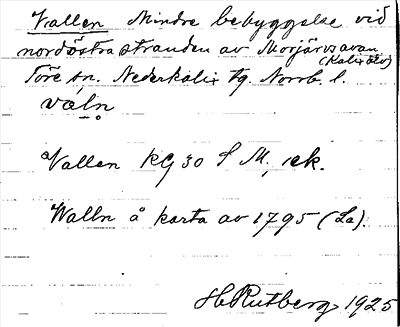 Vallen Mindre bebyggelse vid
nordöstra stranden av Morjärvsavan
(Kalix älv)
Töre sn. Nederkalix tg. Norrb. l.
väln
Vallen KG 30 S M, ek.
Walln å karta av 1795 (La).
H Rutberg 1925